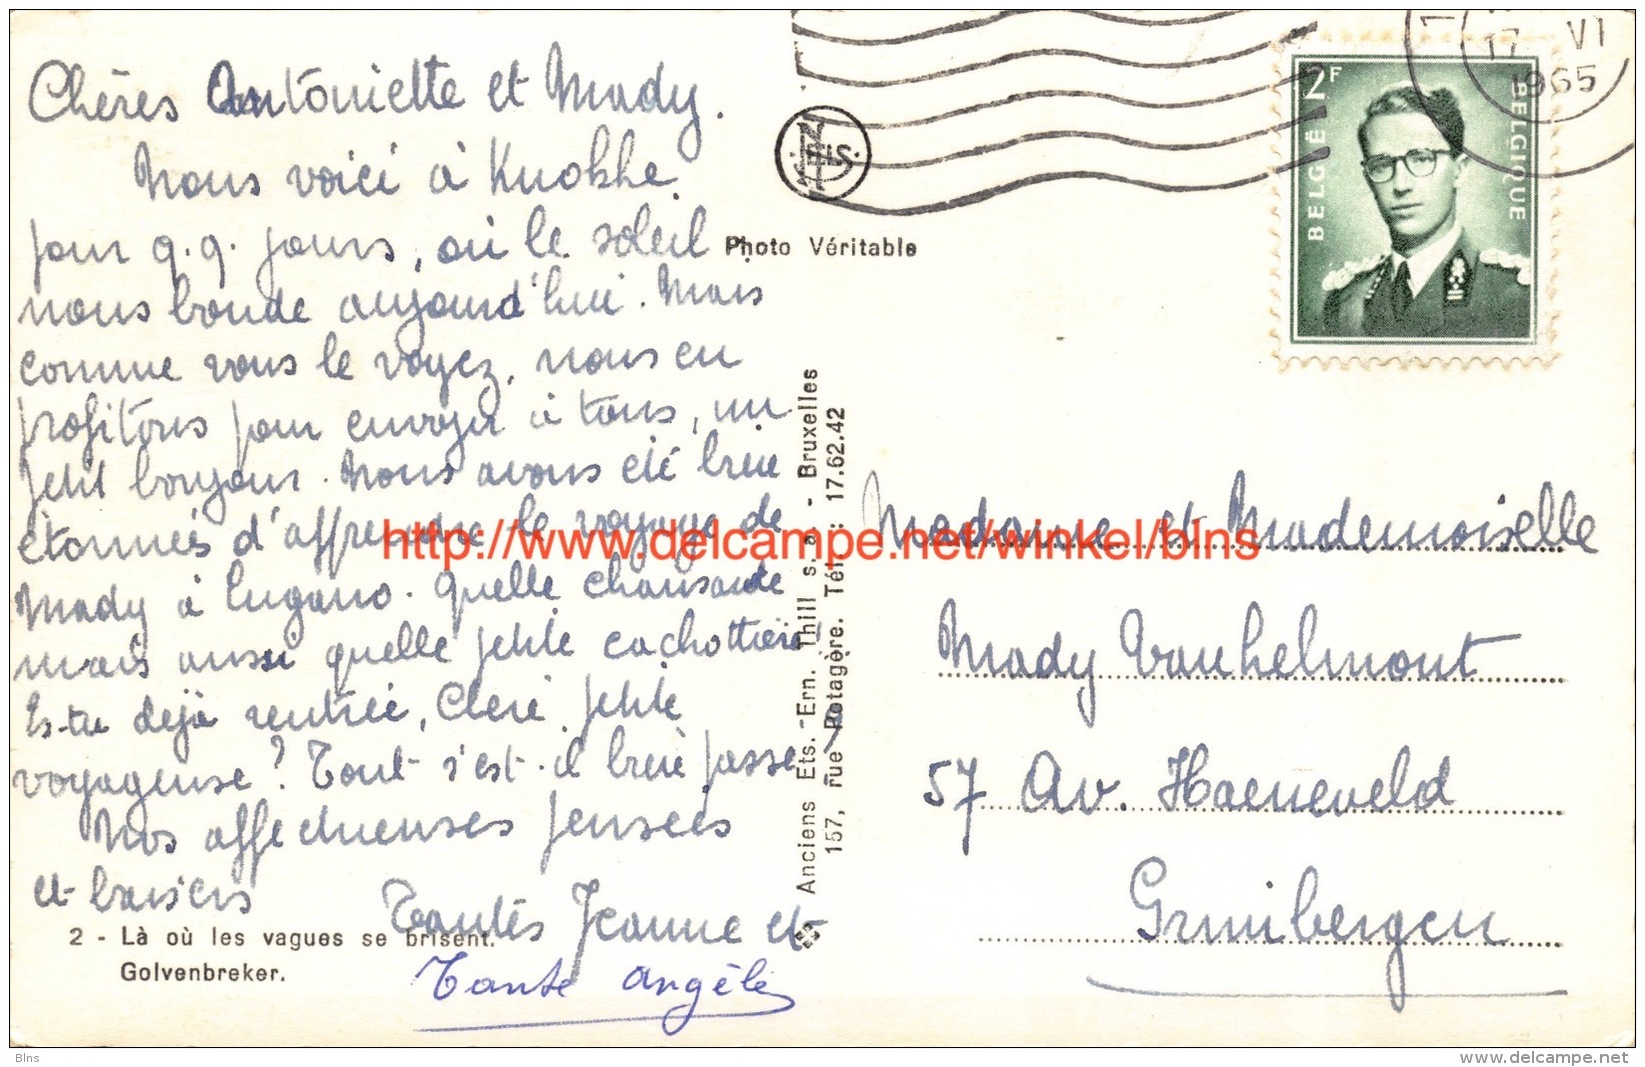 Chères Antoniette et Mady.
Nous voici à Knokke
pour q.q. jours, où le soleil
nous boude aujourd'hui. Mais
comme vous le voyez, nous en
profitons pour envoyer à tous, un
petit bonjour. Nous avons été bien
étonnés d'apprendre le voyage de
Mady à Lugano. Quelle chansarde
mais aussi quelle petite cachottière!
Es-tu déjà rentrée, Chère petite
voyageuse? Tout s'est-il bien passé,
Nos affectueuses pensées
et baisers
Tantes Jeanne et
Tante Angèle
2 - Là où les vagues se brisent.
Golvenbreker.
Photo Véritable
Anciens Ets. Ern. Thill s. a. - Bruxelles
157, rue Potagère. Tél.: 17.62.42
2F
BELGIË
BELGIQUE
17 VI
1965
Madame et Mademoiselle
Mady Vanhelmont
57 Av. Haeneveld
Grimbergen
http://www.delcampe.net/winkel/blns
Blns
www.delcampe.net